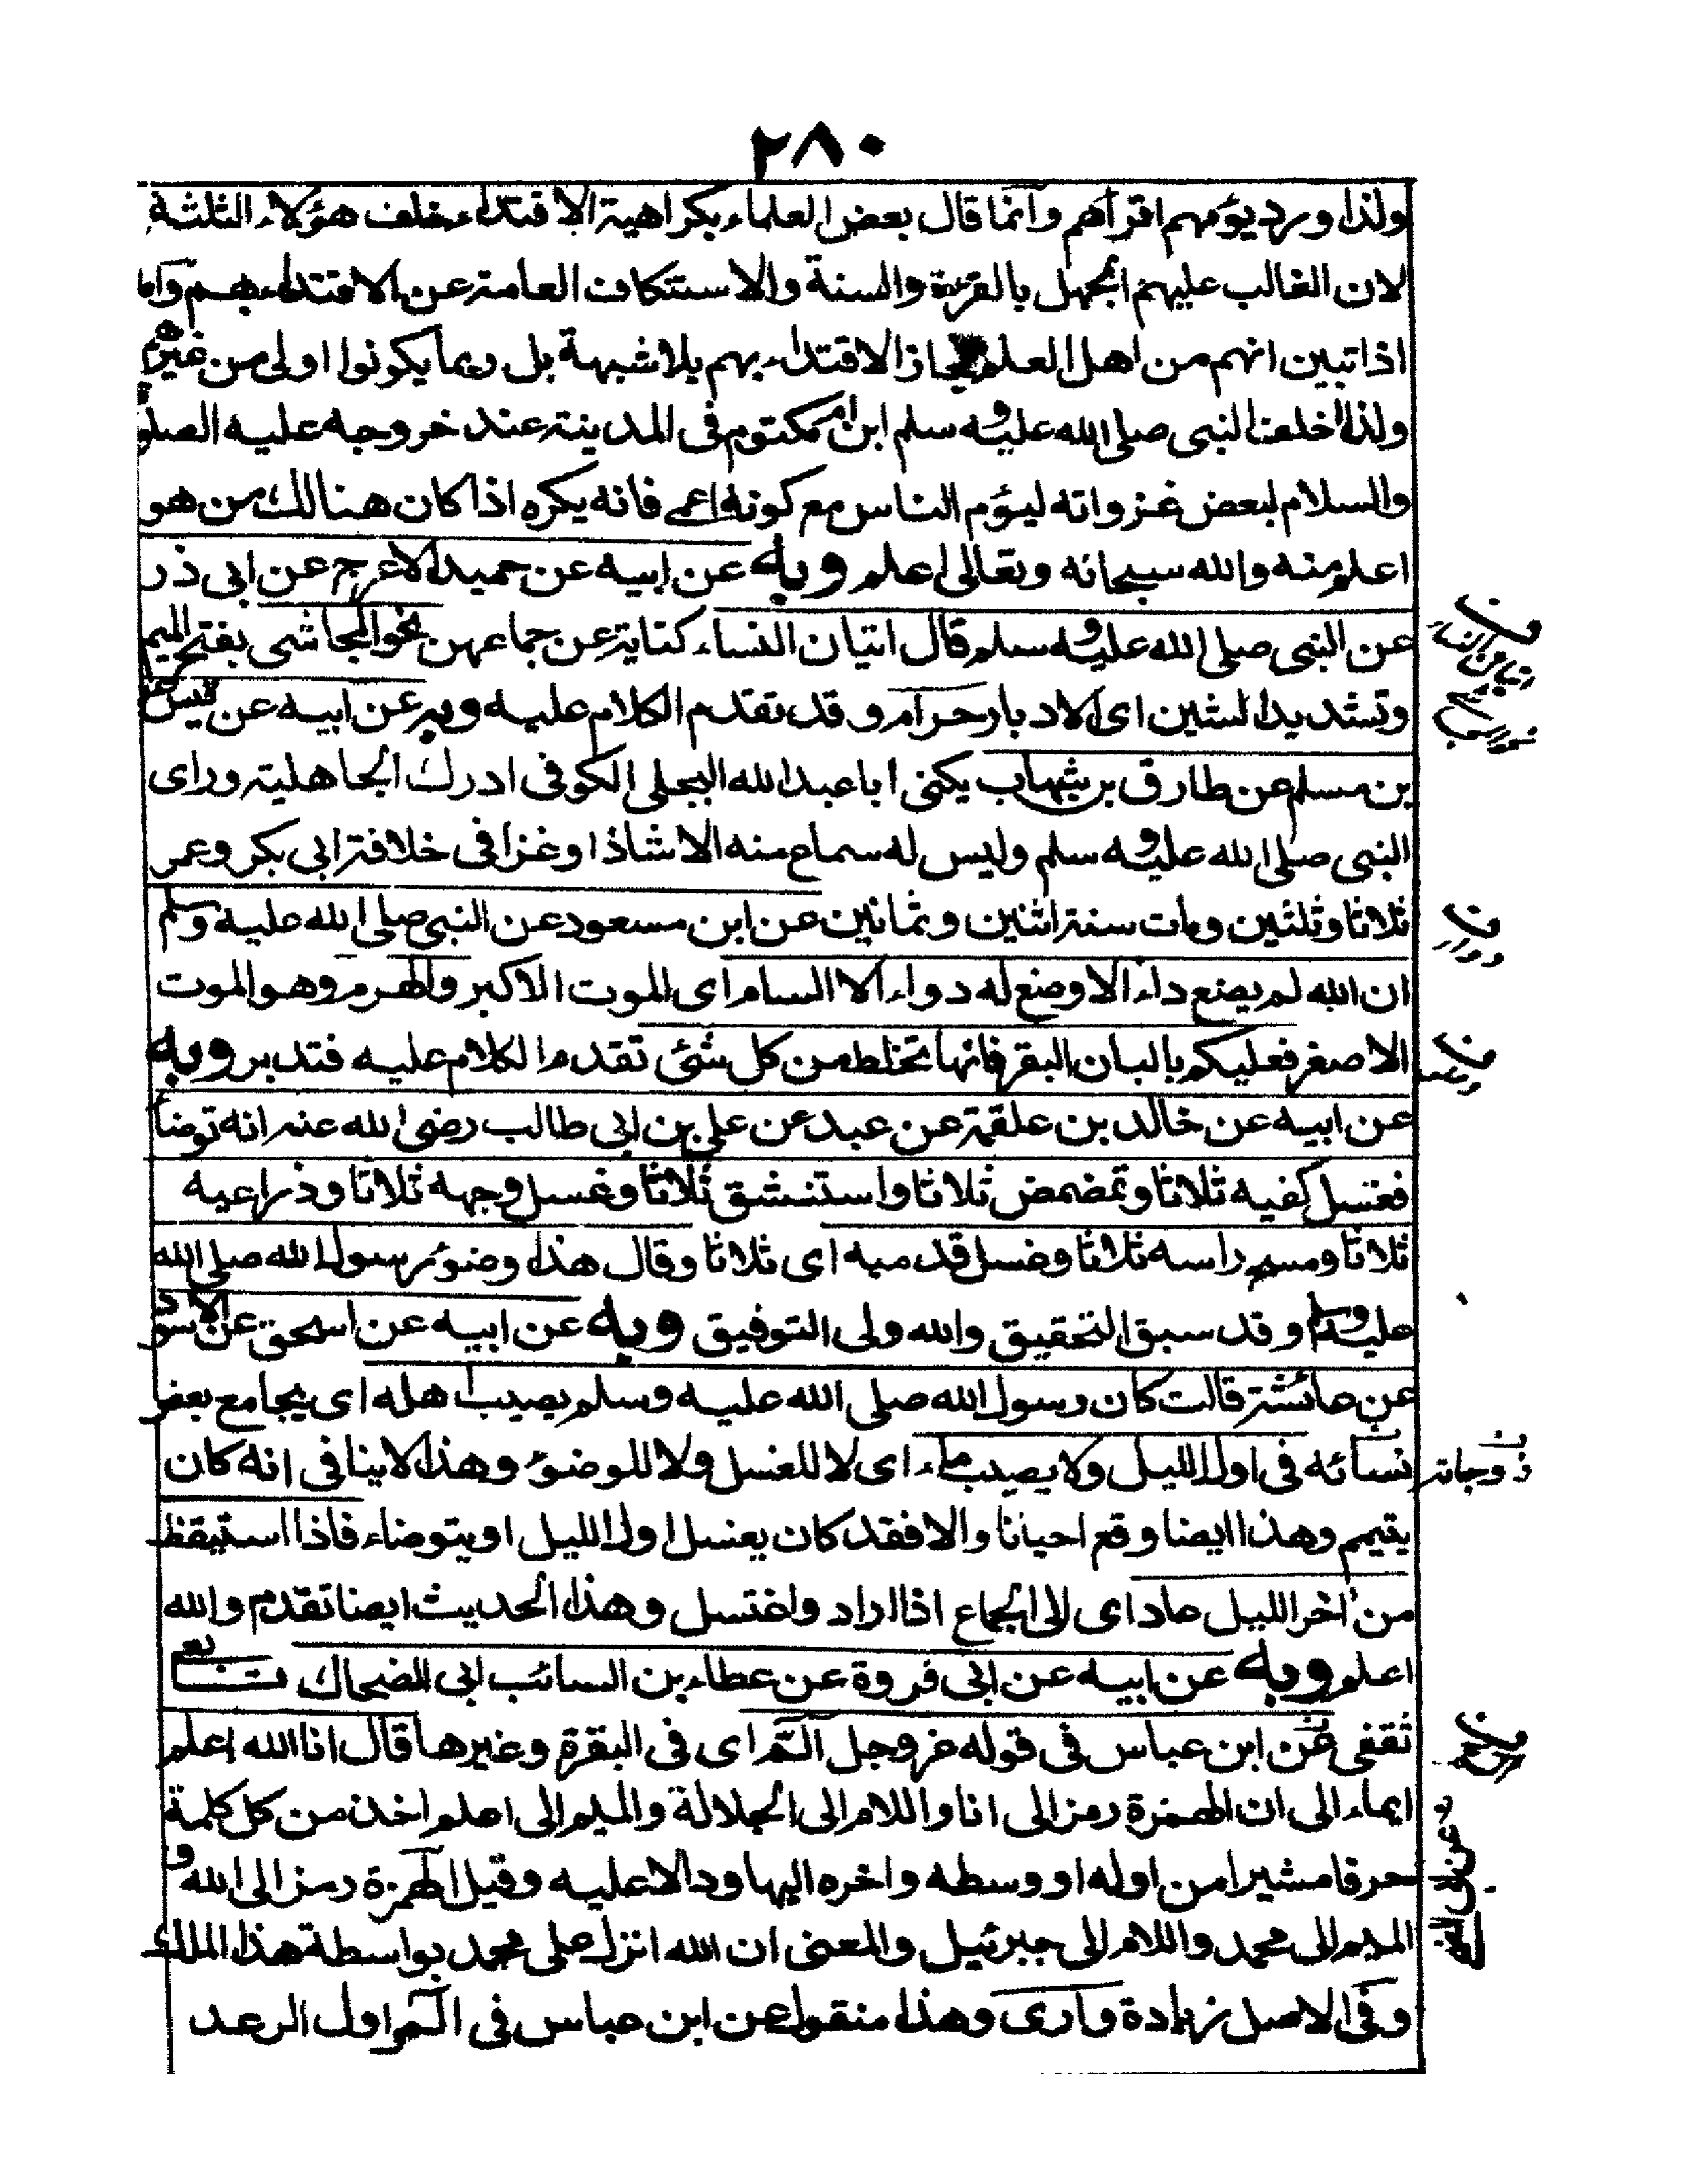 ٢٨٠
ولذا ورد يؤمهم اقرأهم وانما قال بعض العلماء بكراهية الاقتداء خلف هؤلاء الثلثة
لان الغالب عليهم الجهل بالقرءة والسنة والاستنكاف العامة عن الاقتداء بهم واما
اذا تبين انهم من اهل العلم جاز الاقتداء بهم بلا شبهة بل ربما يكونوا اولى من غيرهم
ولذا خلف النبى صلى الله عليه وسلم ابن ام مكتوم فى المدينة عند خروجه عليه الصلوة
والسلام لبعض غزواته ليؤم الناس مع كونه اعمى فانه يكره اذا كان هنالك من هو
اعلم منه والله سبحانه وتعالى اعلم وبه عن ابيه عن حميد الاعرج عن ابى ذر
عن النبى صلى الله عليه وسلم قال اتيان النساء كناية عن جماعهن نحو المحاشى بفتح الميم
وتشديد الشين اى الادبار حرام وقد تقدم الكلام عليه وبه عن ابيه عن قيس
بن مسلم عن طارق بن شهاب يكنى ابا عبد الله البجلى الكوفى ادرك الجاهلية وراى
النبى صلى الله عليه وسلم وليس له سماع منه الا شاذا وغزا فى خلافة ابى بكر وعمر
ثلاثا وثلثين ومات سنة اثنين وثمانين عن ابن مسعود عن النبى صلى الله عليه وسلم
ان الله لم يضع داء الا وضع له دواء الا السام اى الموت الاكبر والهرم وهو الموت
الاصغر فعليكم بالبان البقر فانها تخلط من كل شئ تقدم الكلام عليه فتدبر وبه
عن ابيه عن خالد بن علقمة عن عبد عن على بن ابى طالب رضى الله عنه انه توضأ
فغسل كفيه ثلاثا وتمضمض ثلاثا واستنشق ثلاثا وغسل وجهه ثلاثا وذراعيه
ثلاثا ومسح راسه ثلاثا وغسل قدميه اى ثلاثا وقال هذا وضوء رسول الله صلى الله
عليه وسلم وقد سبق التحقيق والله ولى التوفيق وبه عن ابيه عن اسحق عن الاسود
عن عائشة قالت كان رسول الله صلى الله عليه وسلم يصيب اهله اى يجامع بعض
نسائه فى اول الليل ولا يصيب ماء اى لا للغسل ولا للوضوء وهذا لا ينافى انه كان
زوجاته
يتيمم وهذا ايضا وقع احيانا والا فقد كان يغسل اول الليل او يتوضاء فاذا استيقظ
من اخر الليل عاد اى الى الجماع اذا اراد واغتسل وهذا الحديث ايضا تقدم والله
اعلم وبه عن ابيه عن ابى فروة عن عطاء بن السائب ابى الضحاك
ثقفى عن ابن عباس فى قوله عز وجل الٓمٓ اى فى البقرة وغيرها قال انا الله اعلم
ايماء الى ان الهمزة رمز الى انا واللام الى الجلالة والميم الى اعلم اخذ من كل كلمة
حرفا مشيرا من اوله او وسطه واخره اليها ودالا عليه وقيل الهمزة رمز الى الله و
الميم الى محمد واللام الى جبرئيل والمعنى ان الله انزل على محمد بواسطة هذا الملك
وفى الاصل زيادة وارى وهذا منقول عن ابن عباس فى الٓمر اول الرعد